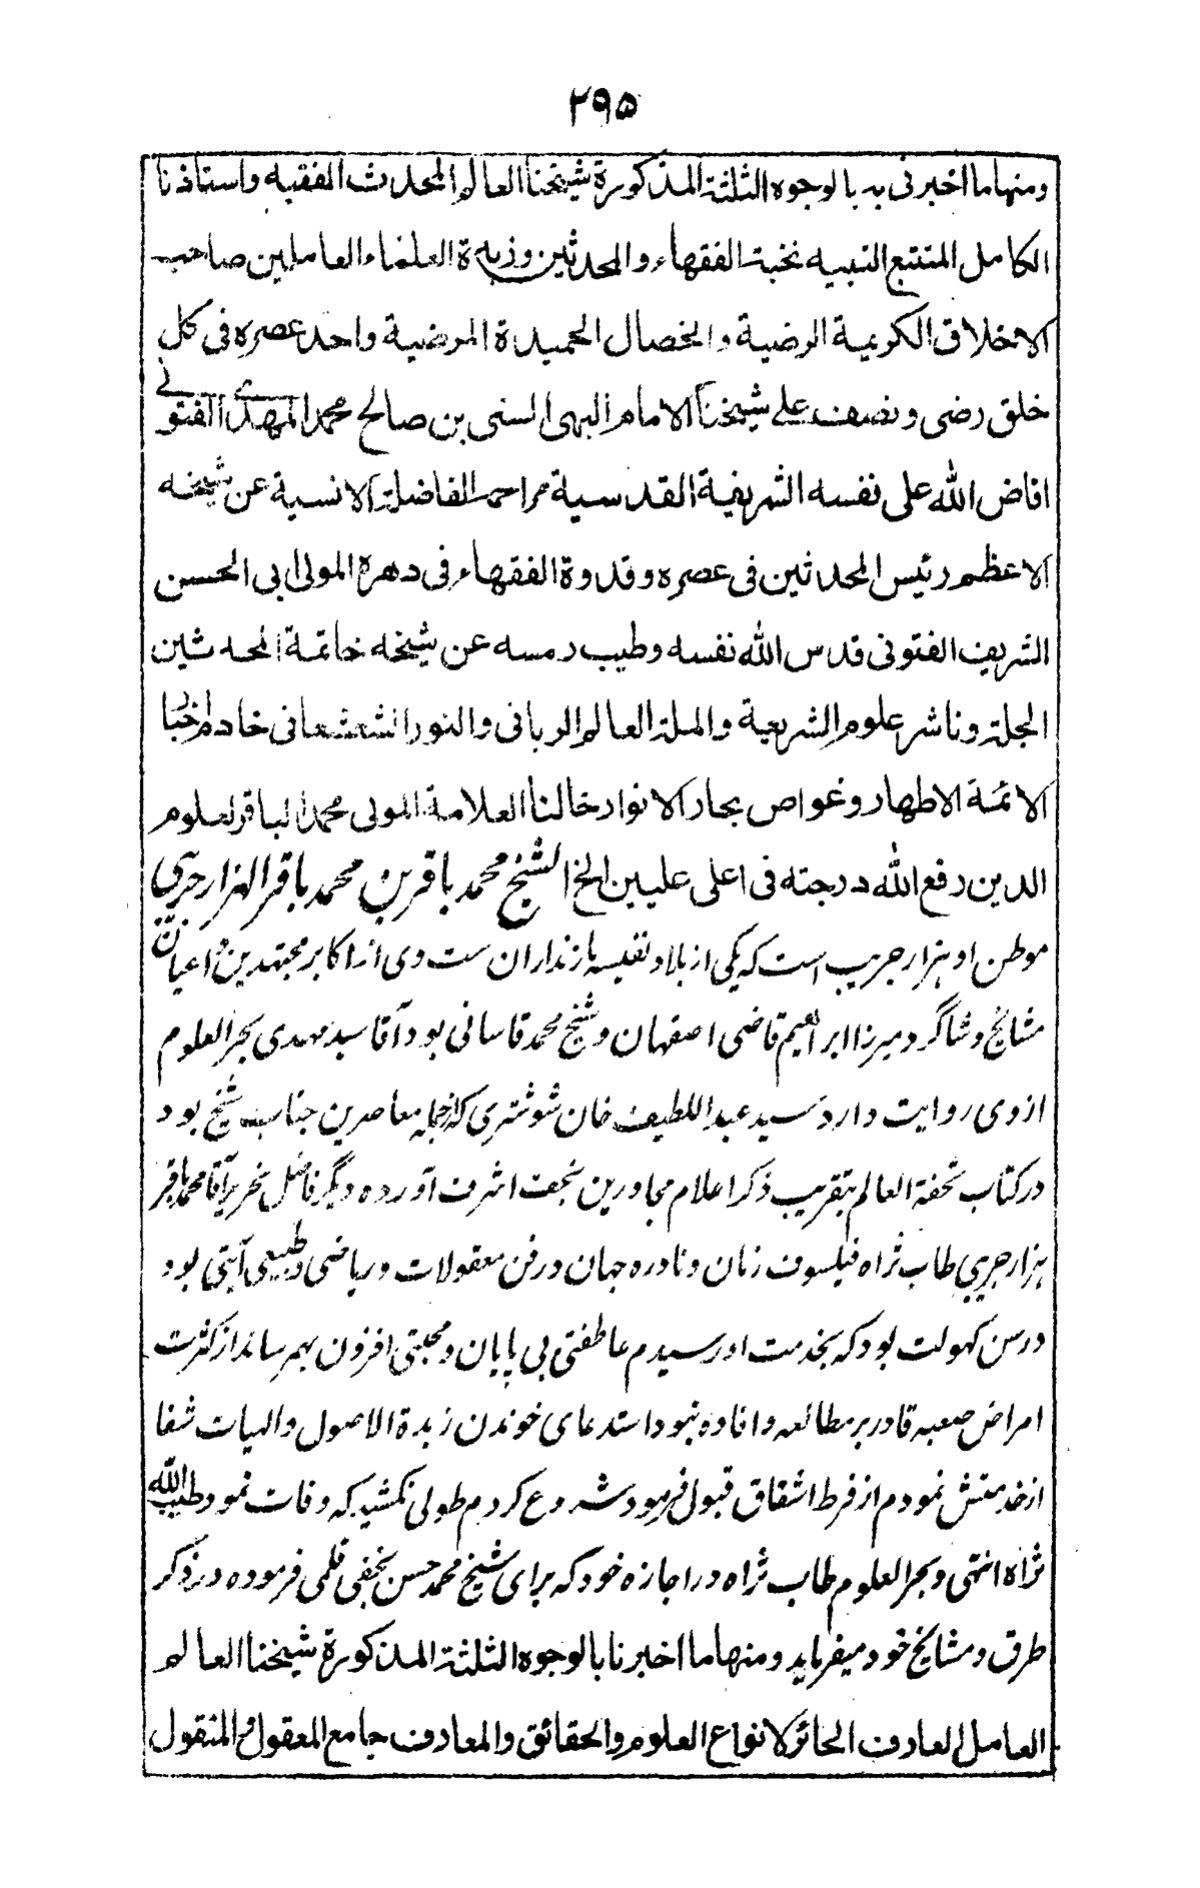 ٢٩٥
ومنها ما اخبرنی به بالوجوه الثلثة المذکورة شیخنا العالم المحدث الفقیه واستاذنا
الکامل المتتبع النبیه نخبة الفقهاء والمحدثین وزبدة العلماء العاملین صاحب
الاخلاق الکریمة الرضیة والخصال الحمیدة المرضیة واحد عصره فی کل
خلق رضی ونصف علی شیخنا الامام البهی السنی بن صالح محمد المهدی الفتونی
افاض الله علی نفسه الشریفة القدسیة مراحمه الفاضلة الانسیة عن شیخه
الاعظم رئیس المحدثین فی عصره وقدوة الفقهاء فی دهره المولی ابی الحسن
الشریف الفتونی قدس الله نفسه وطیب رمسه عن شیخه خاتمة المحدثین
الجلة وناشر علوم الشریعة والملة العالم الربانی والنور الشعشعانی خادم اخبار
الائمة الاطهار وغواص بحار الانوار خالنا العلامة المولی محمد الباقر لعلوم
الدین رفع الله درجته فی اعلی علیین الخ الشیخ محمد باقر بن محمد باقر الهزار جریبی
موطن او هزار جریب است که یکی از بلاد نفیسه مازنداران ست وی از اکابر مجتهدین و اعیان
مشایخ و شاگرد میرزا ابراهیم قاضی اصفهان و شیخ محمد قاسانی بود آقا سید مهدی بحر العلوم
از وی روایت دارد سید عبد اللطیف خان شوشتری که از جمله معاصرین جناب شیخ بود
در کتاب تحفة العالم بتقریب ذکر اعلام مجاورین نجف اشرف آورده دیگر فاضل نحریر آقا محمد باقر
هزار جریبی طاب ثراه فیلسوف زمان و نادره جهان در فن معقولات و ریاضی و طبیعی آیتی بود
در سن کهولت بود که بخدمت او رسیدم عاطفتی بی پایان و محبتی افزون بهم رساند از کثرت
امراض صعبه قادر بر مطالعه و افاده نبود استدعای خوندن زبدة الاصول و الهیات شفا
از خدمتش نمودم از فرط اشفاق قبول فرمود شروع کردم طولی نکشید که وفات نمود طیب الله
ثراه انتهی و بحر العلوم طاب ثراه در اجازه خود که برای شیخ محمد حسن نجفی قلمی فرموده در ذکر
طرق و مشایخ خود میفرماید ومنها ما اخبرنا بالوجوه الثلثة المذکورة شیخنا العالم
العامل العارف الحائز لانواع العلوم والحقائق والمعارف جامع المعقول والمنقول